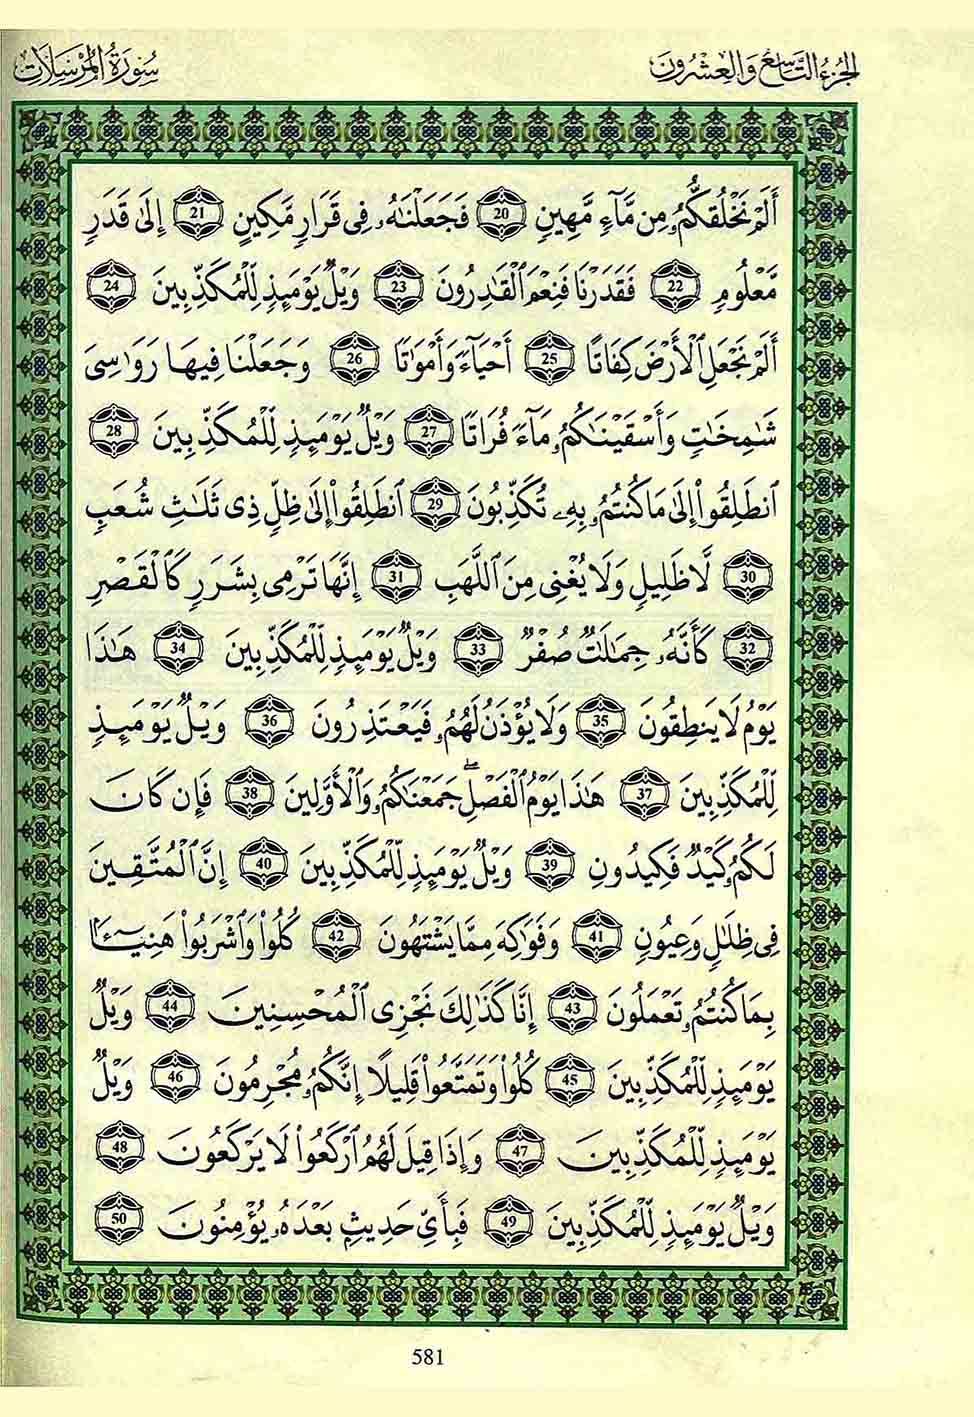 الجُزءُ التَّاسِعُ وَالعِشْرُونَ
سُورَةُ المُرْسَلَات
أَلَمْ نَخْلُقكُّمُۥ مِن مَّآءٍ مَّهِينٍ 20 فَجَعَلْنَٰهُۥ فِى قَرَارٍ مَّكِينٍ 21 إِلَىٰ قَدَرٍ
مَّعْلُومٍ 22 فَقَدَرْنَا فَنِعْمَ ٱلْقَٰدِرُونَ 23 وَيْلٌ يَوْمَئِذٍ لِّلْمُكَذِّبِينَ 24
أَلَمْ نَجْعَلِ ٱلْأَرْضَ كِفَاتًا 25 أَحْيَآءً وَأَمْوَٰتًا 26 وَجَعَلْنَا فِيهَا رَوَٰسِىَ
شَٰمِخَٰتٍ وَأَسْقَيْنَٰكُمُۥ مَآءً فُرَاتًا 27 وَيْلٌ يَوْمَئِذٍ لِّلْمُكَذِّبِينَ 28
ٱنطَلِقُوٓاْ إِلَىٰ مَا كُنتُمُۥ بِهِۦ تُكَذِّبُونَ 29 ٱنطَلِقُوٓاْ إِلَىٰ ظِلٍّ ذِى ثَلَٰثِ شُعَبٍ
30 لَّا ظَلِيلٍ وَلَا يُغْنِى مِنَ ٱللَّهَبِ 31 إِنَّهَا تَرْمِى بِشَرَرٍ كَٱلْقَصْرِ
32 كَأَنَّهُۥ جِمَٰلَٰتٌ صُفْرٌ 33 وَيْلٌ يَوْمَئِذٍ لِّلْمُكَذِّبِينَ 34 هَٰذَا
يَوْمُ لَا يَنطِقُونَ 35 وَلَا يُؤْذَنُ لَهُمُۥ فَيَعْتَذِرُونَ 36 وَيْلٌ يَوْمَئِذٍ
لِّلْمُكَذِّبِينَ 37 هَٰذَا يَوْمُ ٱلْفَصْلِ جَمَعْنَٰكُمُۥ وَٱلْأَوَّلِينَ 38 فَإِن كَانَ
لَكُمُۥ كَيْدٌ فَكِيدُونِ 39 وَيْلٌ يَوْمَئِذٍ لِّلْمُكَذِّبِينَ 40 إِنَّ ٱلْمُتَّقِينَ
فِى ظِلَٰلٍ وَعِيُونٍ 41 وَفَوَٰكِهَ مِمَّا يَشْتَهُونَ 42 كُلُواْ وَٱشْرَبُواْ هَنِيٓـًٔا
بِمَا كُنتُمُۥ تَعْمَلُونَ 43 إِنَّا كَذَٰلِكَ نَجْزِى ٱلْمُحْسِنِينَ 44 وَيْلٌ
يَوْمَئِذٍ لِّلْمُكَذِّبِينَ 45 كُلُواْ وَتَمَتَّعُواْ قَلِيلًا إِنَّكُمُۥ مُجْرِمُونَ 46 وَيْلٌ
يَوْمَئِذٍ لِّلْمُكَذِّبِينَ 47 وَإِذَا قِيلَ لَهُمُ ٱرْكَعُواْ لَا يَرْكَعُونَ 48
وَيْلٌ يَوْمَئِذٍ لِّلْمُكَذِّبِينَ 49 فَبِأَىِّ حَدِيثٍۭ بَعْدَهُۥ يُؤْمِنُونَ 50
581